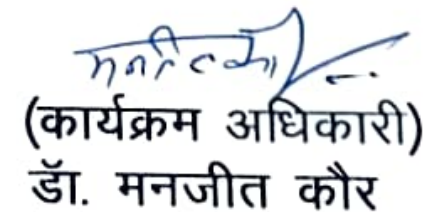 (कार्यक्रम अधिकारी)
डॉ. मनजीत कौर